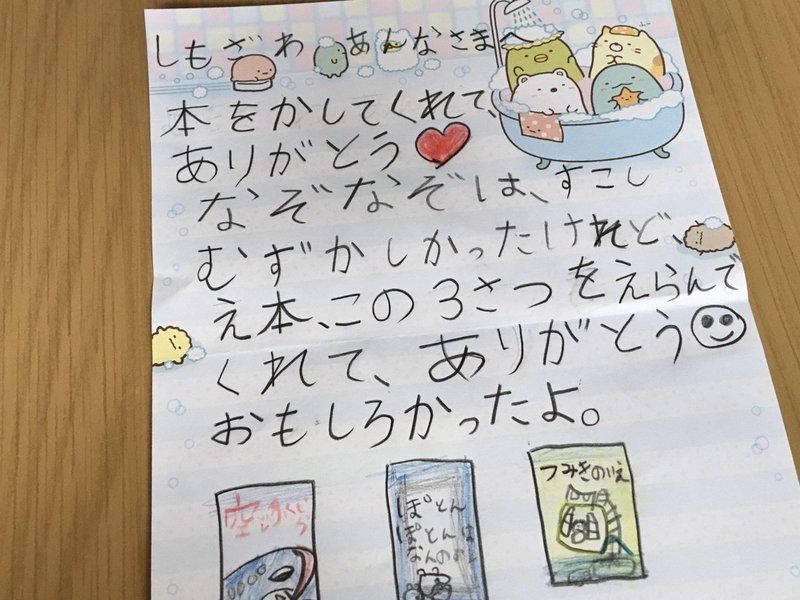 しもざわ あんなさまへ
本をかしてくれて、
ありがとう
なぞなぞは、すこし
むずかしかったけれど、
え本、この3さつをえらんで
くれて、ありがとう
おもしろかったよ。
空とぶくじら
ぽとん
ぽとんは
なんのおと
つみきのいえ